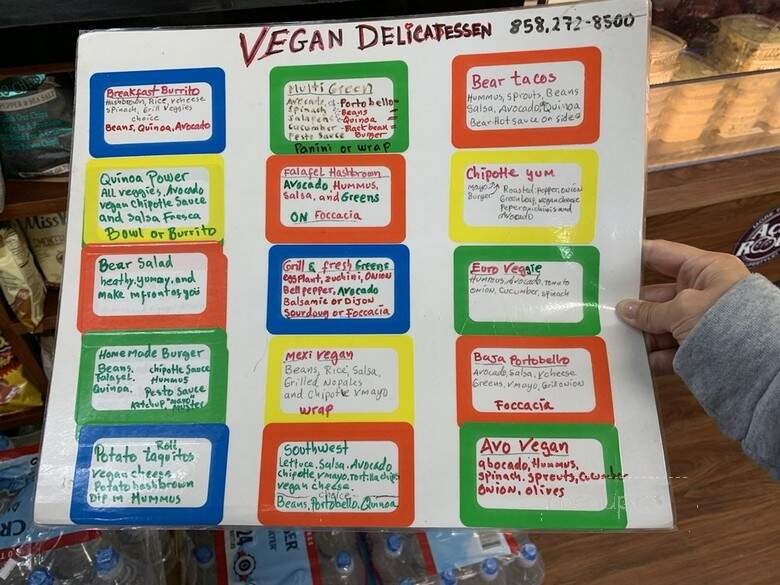 VEGAN DELICATESSEN 858.272-8500
Breakfast Burrito
Hashbrown, Rice, vcheese
spinach, Grill veggies
choice
Beans, Quinoa, Avocado
Multi Green
Avocado, Portobello
spinach Beans
Jalapeno Quinoa
cucumber Black bean
Pesto sauce Burger
Panini or wrap
Bear tacos
Hummus, sprouts, Beans
Salsa, Avocado, Quinoa
Bear Hot sauce on side
Quinoa Power
All veggies, Avocado
vegan Chipotle Sauce
and Salsa Fresca
Bowl or Burrito
Falafel Hashbrown
Avocado, Hummus,
Salsa, and Greens
ON Foccacia
Chipotle yum
mayo Roasted pepper, onion
Burger Green leaf, vegan cheese
Peperonichinis and
Avocado
Bear Salad
heathy, yummy, and
make in front of you
Grill & fresh Greens
eggPlant, zuchini, ONION
Bell pepper, Avocado
Balsamic or Dijon
Sourdoug or Foccacia
Euro Veggie
Hummus, Avocado, tomato
ONION, Cucumber, spinach
Home Made Burger
Beans, chipotle sauce
Falafel, Hummus
Quinoa, Pesto Sauce
Ketchup, "mayo"
muster
Mexi vegan
Beans, Rice, Salsa,
Grilled Nopales
and Chipotle vmayo
wrap
Baja Portobello
Avocado, Salsa, vcheese
Greens, vmayo, Grill onion
Foccacia
Roll
Potato taquitos
vegan cheese
Potato hashbrown
Dip in Hummus
Southwest
Lettuce, Salsa, Avocado
Chipotle, vmayo, tortilla chips
vegan cheese.
choice
Beans, Portobello, Quinoa
Avo Vegan
abocado, Hummus,
spinach, sprouts, Cucumber
ONION, olives